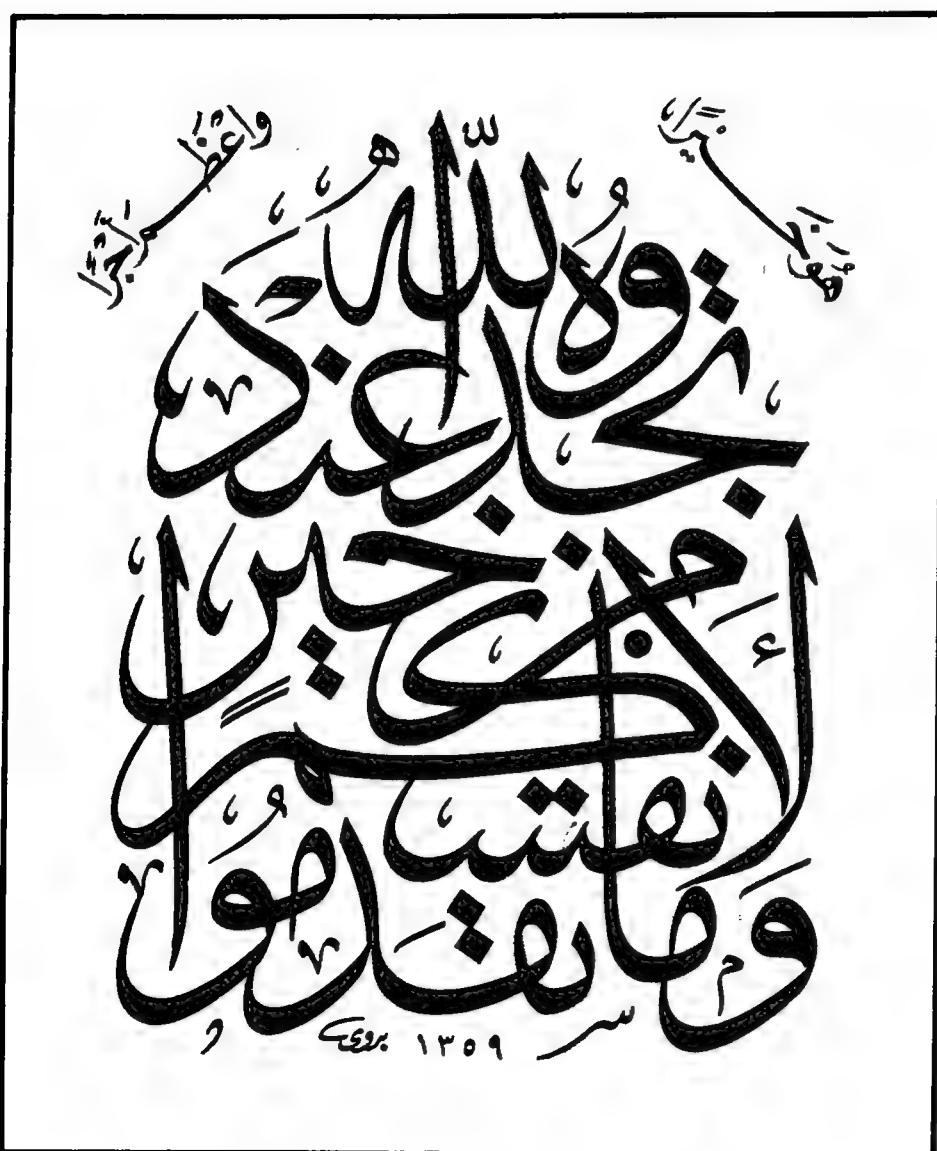 وَمَا تُقَدِّمُوا
لِأَنفُسِكُم
مِّنْ خَيْرٍ
تَجِدُوهُ عِندَ
اللَّهِ
هُوَ خَيْرًا
وَأَعْظَمَ أَجْرًا
١٣٥٩